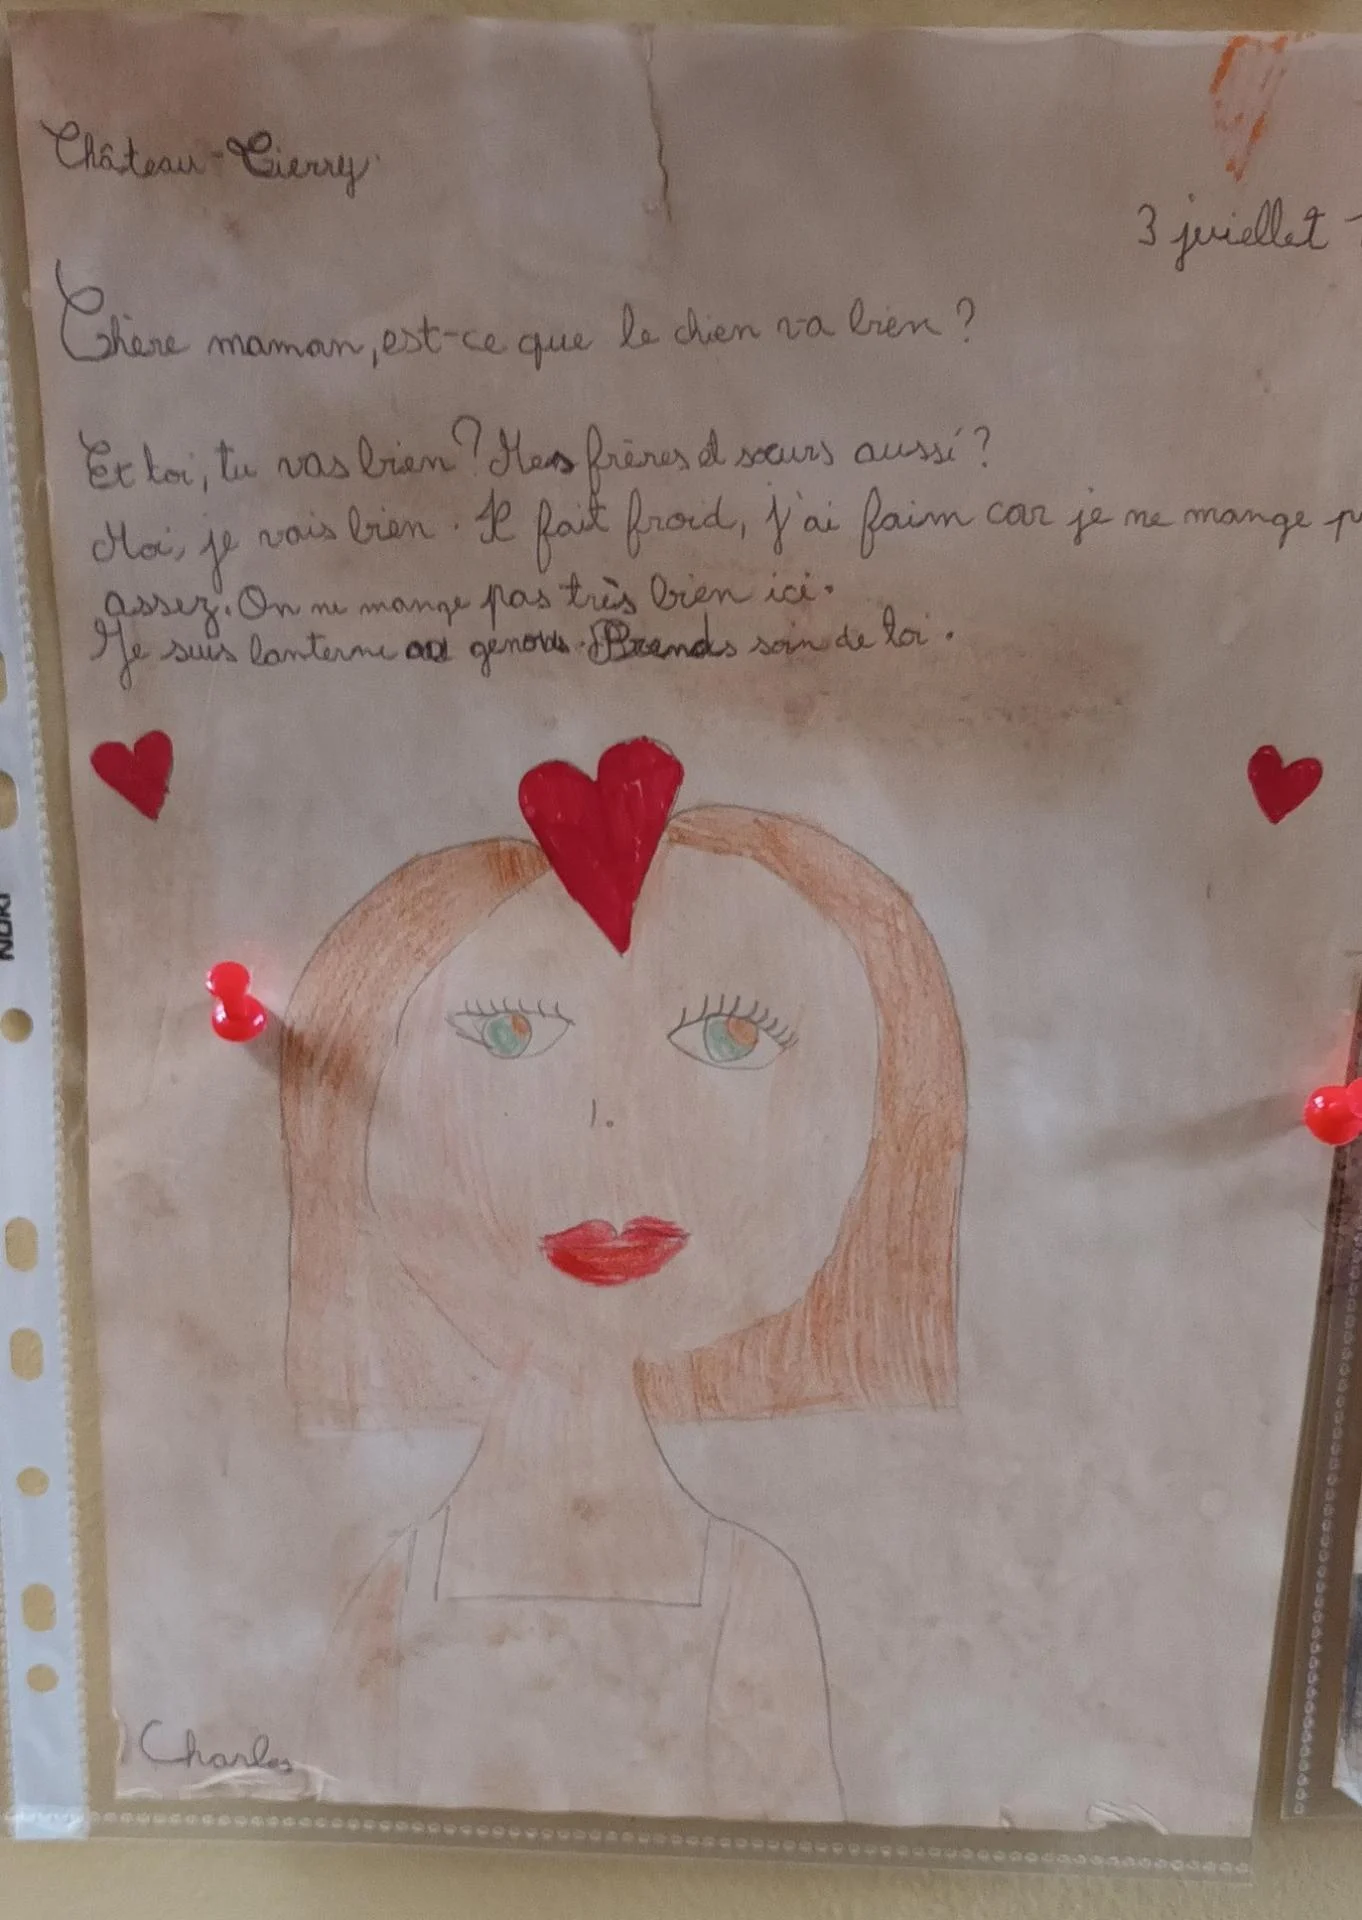 Château-Tierry
3 juiellet
Chère maman, est-ce que le chien va bien ?
Et toi, tu vas bien ? Mes frères et sœurs aussi ?
Moi, je vais bien. Il fait froid, j'ai faim car je ne mange p
assez. On ne mange pas très bien ici.
Je suis lanterne au genous. Prends soin de toi.
Charles